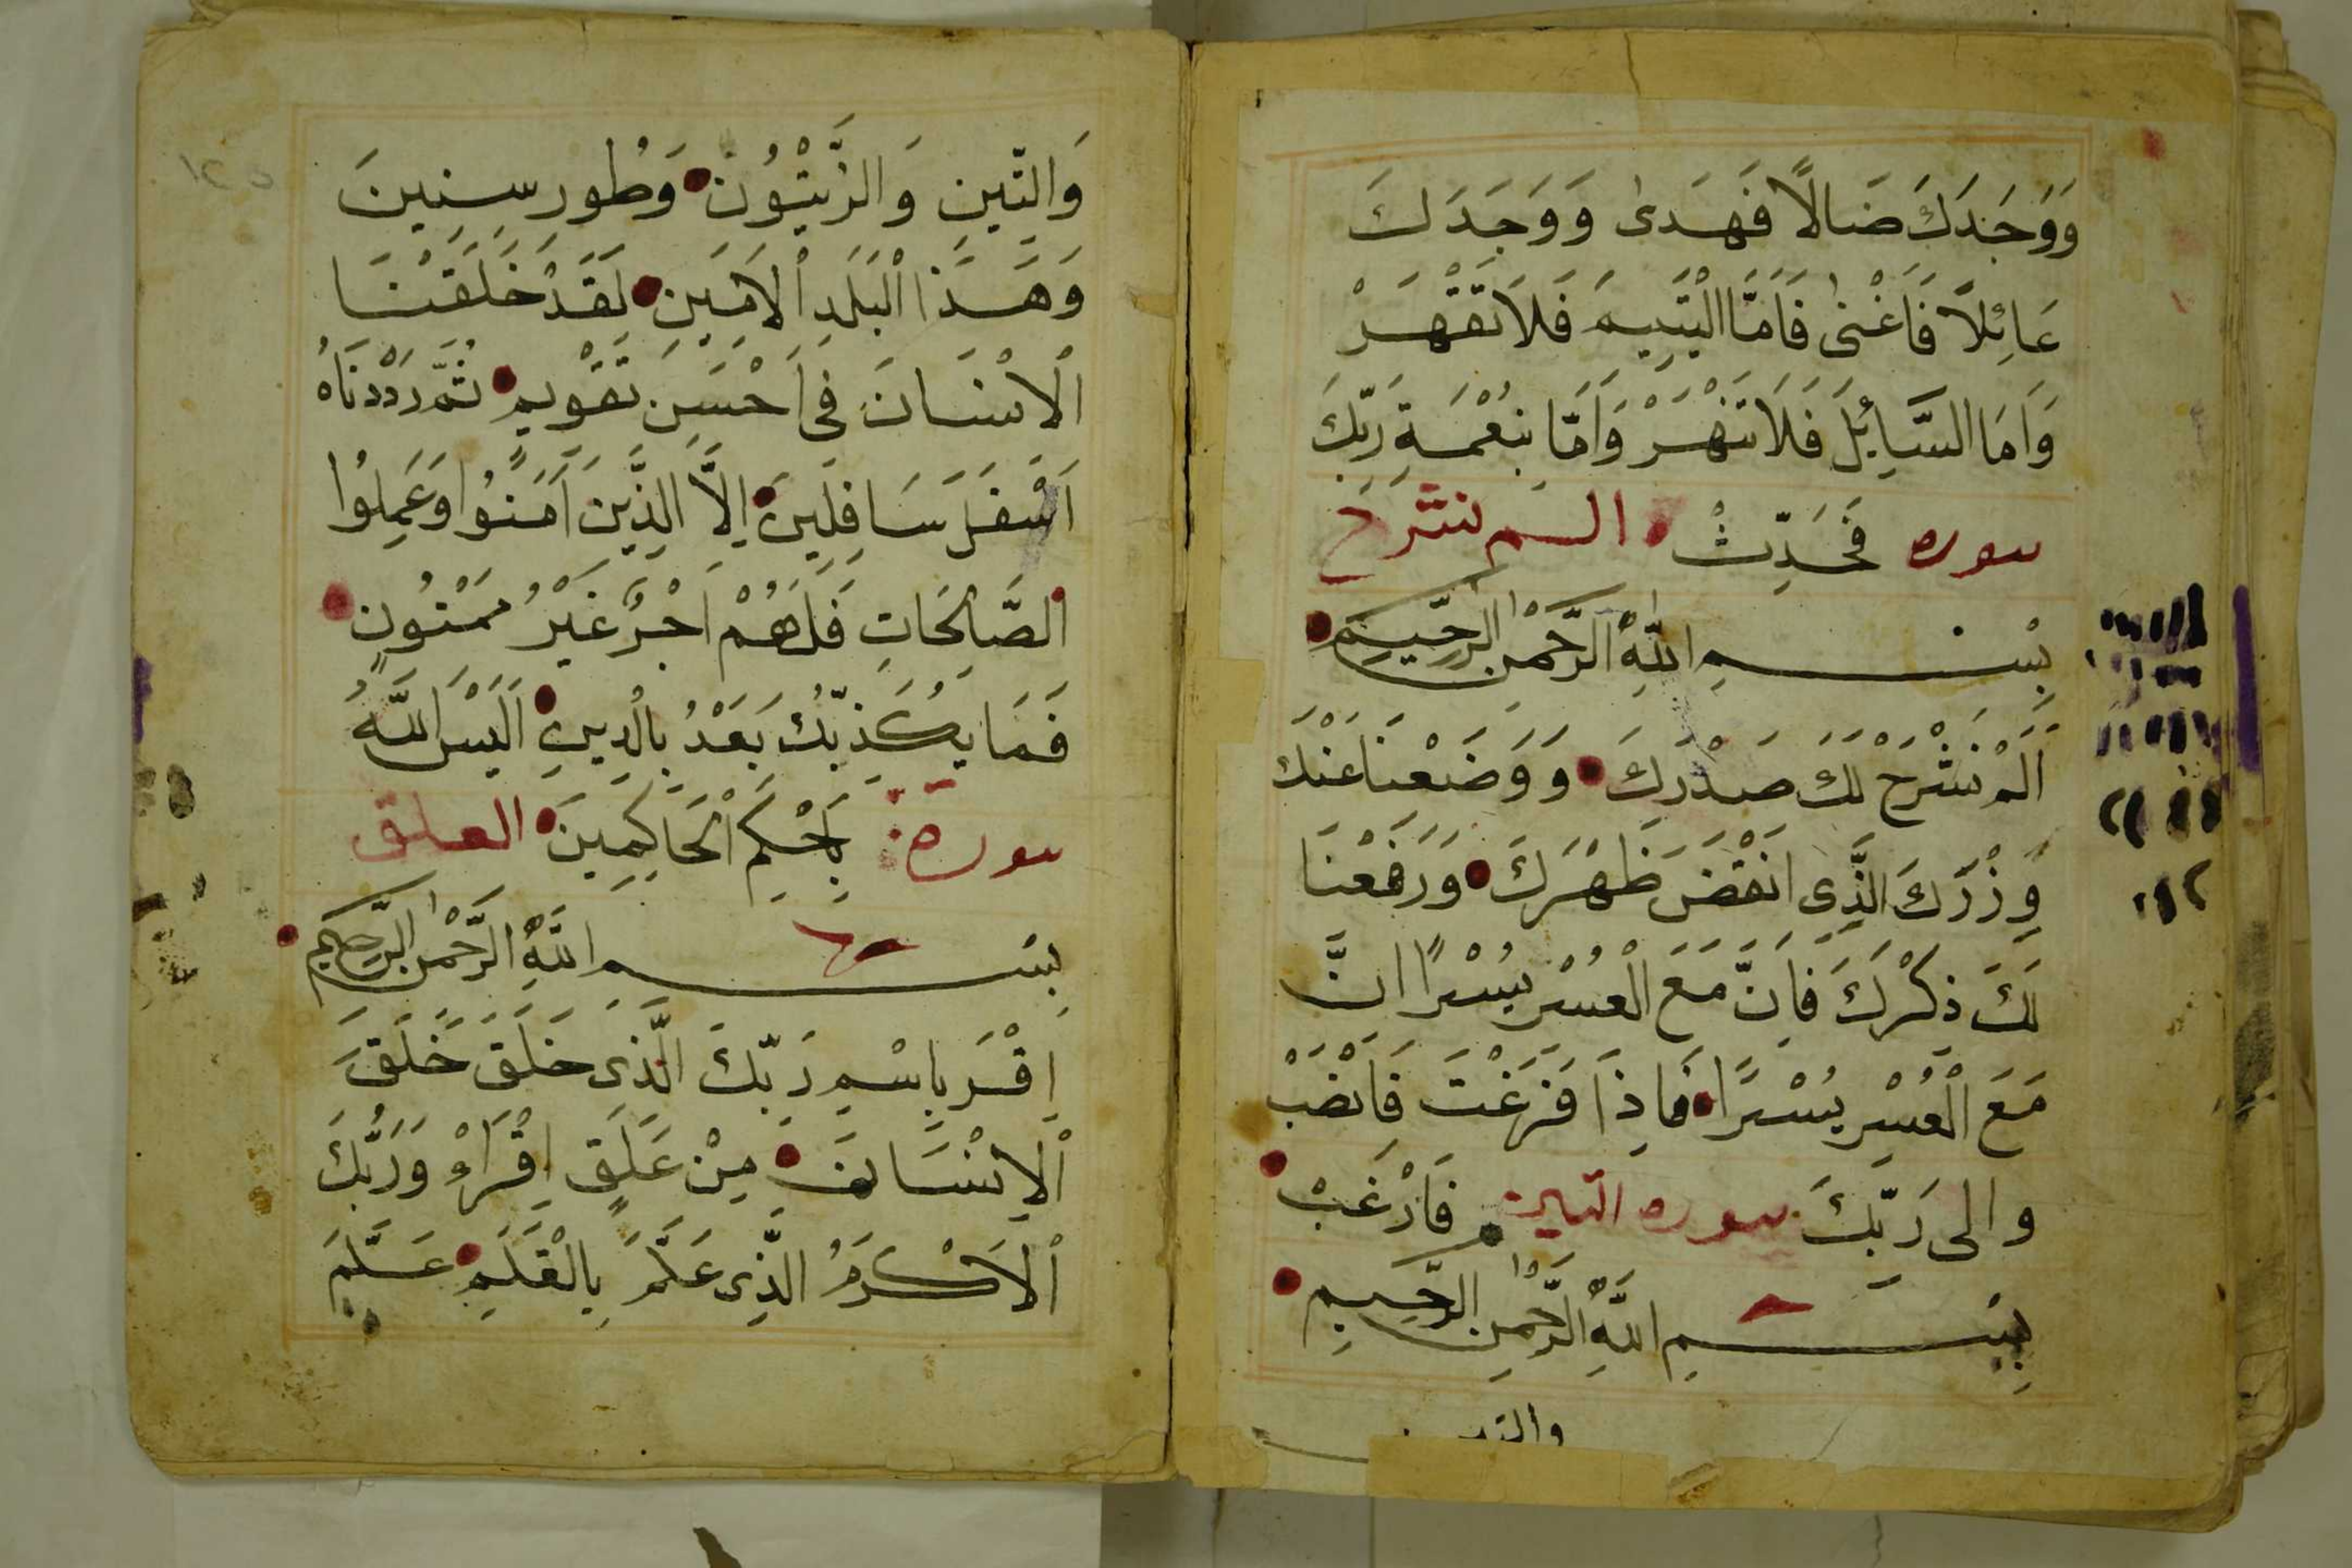 وَوَجَدَكَ ضَالًّا فَهَدٰى وَوَجَدَكَ
عَائِلًا فَاَغْنٰى فَاَمَّا الْيَتِيمَ فَلَا تَقْهَرْ
وَاَمَا السَّائِلَ فَلَا تَنْهَرْ وَاَمَّا بِنِعْمَةِ رَبِّكَ
سوره فَحَدِّثْ الم نشرح
بِسْمِ اللّٰهِ الرَّحْمٰنِ الرَّحِيمِ
اَلَمْ نَشْرَحْ لَكَ صَدْرَكَ وَوَضَعْنَا عَنْكَ
وِزْرَكَ الَّذِى اَنْقَضَ ظَهْرَكَ وَرَفَعْنَا
لَكَ ذِكْرَكَ فَاِنَّ مَعَ الْعُسْرِ يُسْرًا اِنَّ
مَعَ الْعُسْرِ يُسْرًا فَاِذَا فَرَغْتَ فَانْصَبْ
والى رَبِّكَ سوره التين فَارْغَبْ
بِسْمِ اللّٰهِ الرَّحْمٰنِ الرَّحِيمِ
والتين
١٢٥
وَالتّينِ وَالزَّيْتُونِ وَطُورِ سِنِينَ
وَهَذَا الْبَلَدِ الْاَمِينِ لَقَدْ خَلَقْنَا
الْاِنْسَانَ فِى اَحْسَنِ تَقْوِيمٍ ثُمَّ رَدَدْنَاهُ
اَسْفَلَ سَافِلِينَ اِلَّا الَّذِينَ اَمَنُوا وَعَمِلُوا
الصَّالِحَاتِ فَلَهُمْ اَجْرٌ غَيْرُ مَمْنُونٍ
فَمَا يُكَذِّبُكَ بَعْدُ بِالدِّينِ اَلَيْسَ اللّٰهُ
سورة بِاَحْكَمِ الْحَاكِمِينَ العلق
بِسْمِ اللّٰهِ الرَّحْمٰنِ الرَّحِيمِ
اِقْرَ بِاسْمِ رَبِّكَ الَّذِى خَلَقَ خَلَقَ
الْاِنْسَانَ مِنْ عَلَقٍ اِقْرَاْ وَرَبُّكَ
الْاَكْرَمُ الَّذِى عَلَّمَ بِالْقَلَمِ عَلَّمَ